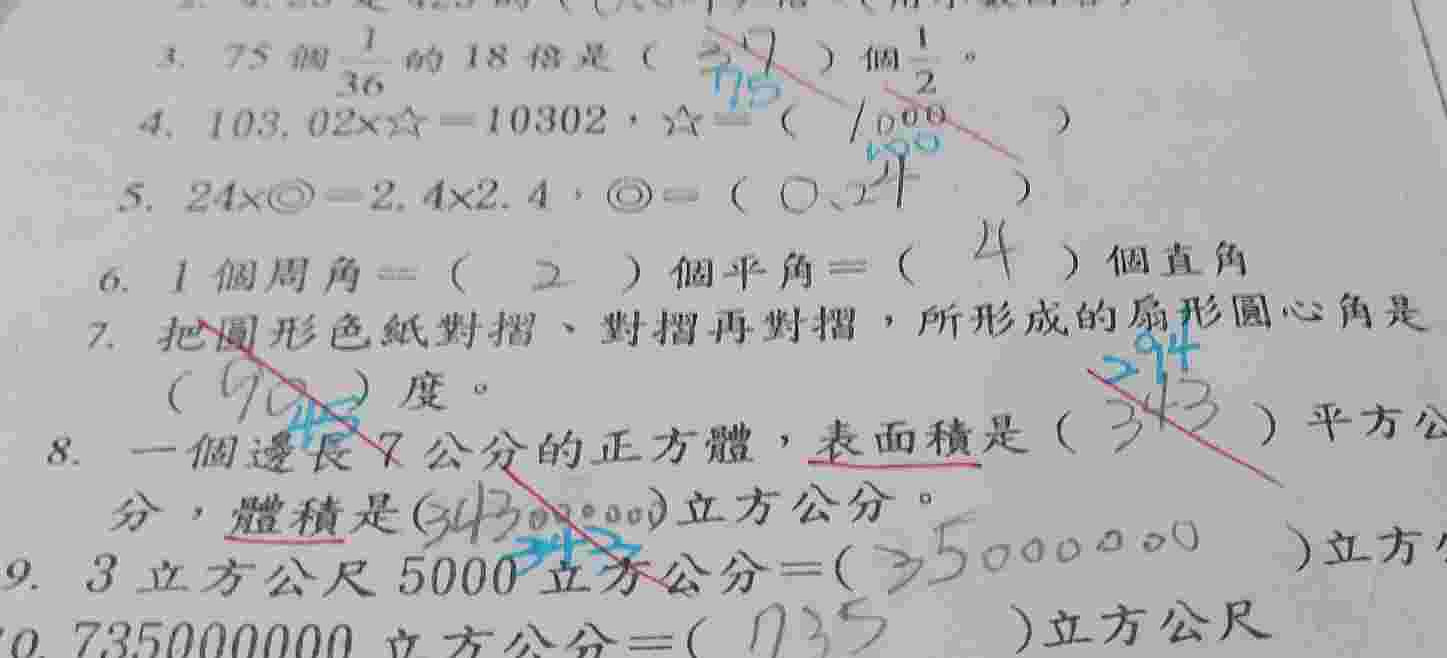 3. 75 個 1/36 的 18 倍是 ( 37 75 ) 個 1/2 。
4. 103.02×☆=10302,☆=( 1000 100 )
5. 24×◎=2.4×2.4,◎=( 0.24 )
6. 1 個周角=( 2 ) 個平角=( 4 ) 個直角
7. 把圓形色紙對摺、對摺再對摺,所形成的扇形圓心角是
( 90 45 ) 度。
8. 一個邊長 7 公分的正方體,表面積是 ( 343 294 ) 平方公
分,體積是(343000000 343)立方公分。
9. 3 立方公尺 5000 立方公分=( 35000000 )立方
0. 735000000 立方公分=( 735 )立方公尺